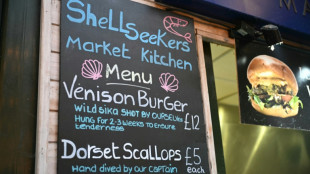 ShellSeekers
Market Kitchen
Menu
Venison Burger
Wild Sika shot by ourselves
Hung for 2-3 weeks to ensure
tenderness £12
Dorset Scallops £5
Hand dived by our Captain each
MA